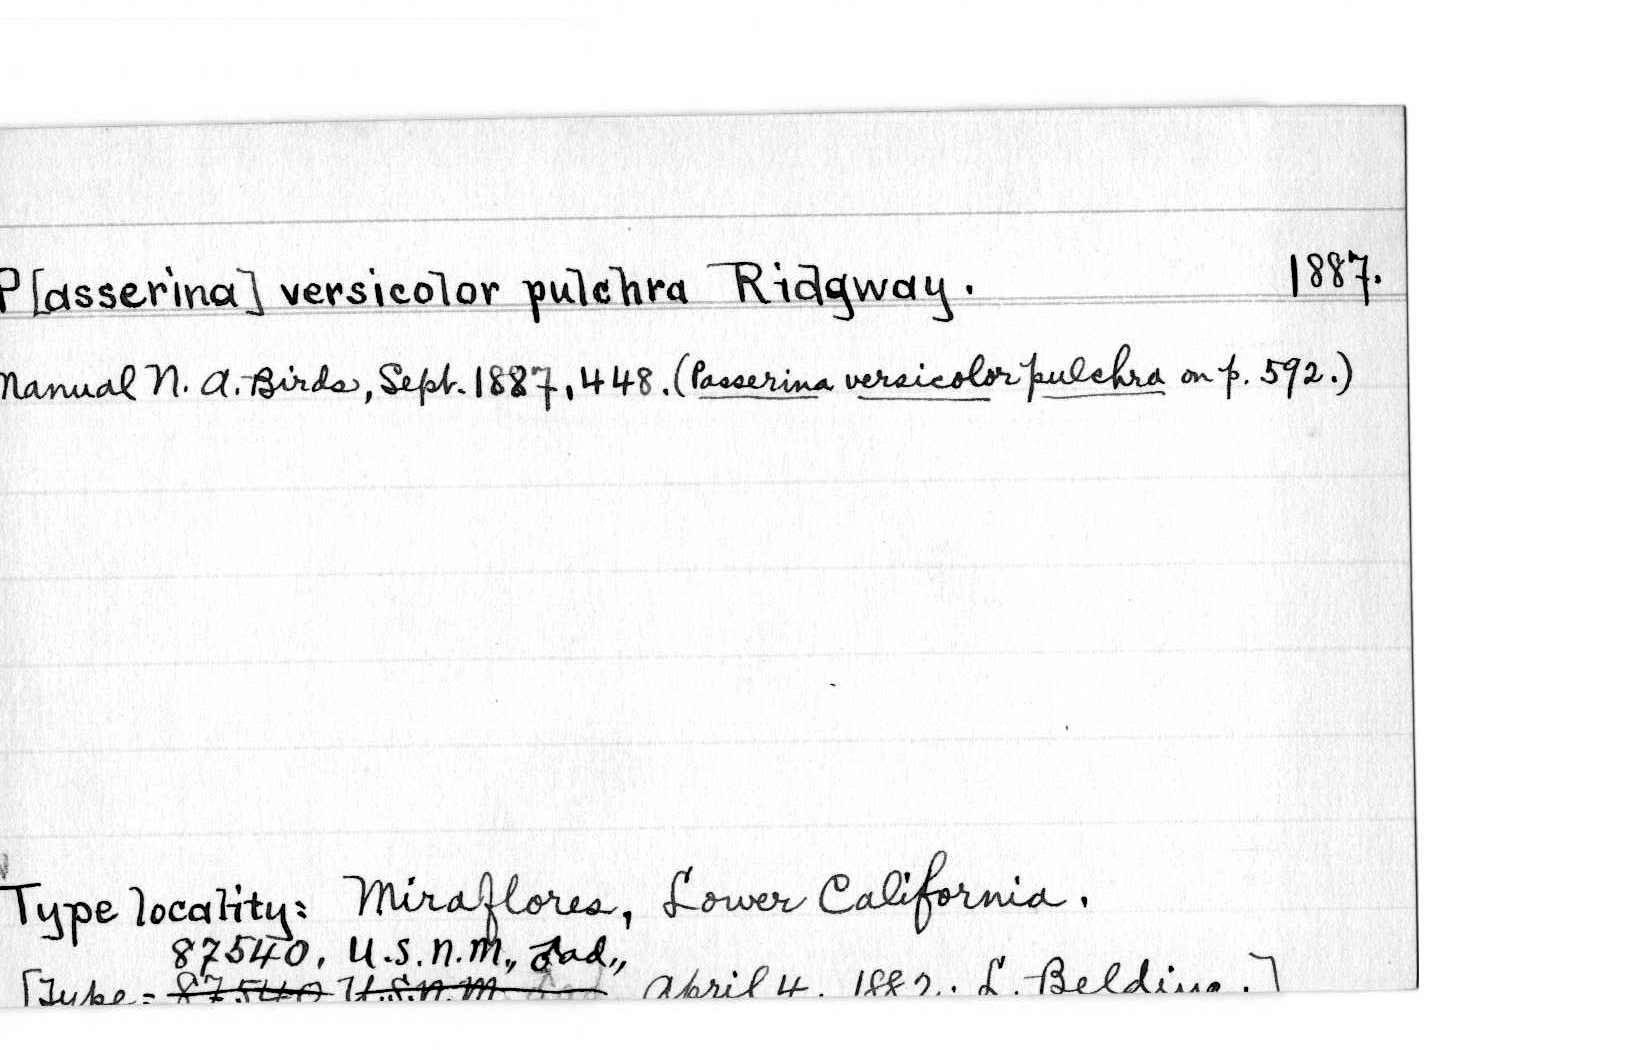 P[asserina] versicolor pulchra Ridgway. 1887.
Manual N. A. Birds, Sept. 1887, 448. (Passerina versicolor pulchra on p. 592.)
Type locality: Miraflores, Lower California.
87540, U.S.N.M., ♂ad.,
[Type = 87540 U.S.N.M. April 4, 1882. L. Belding.]